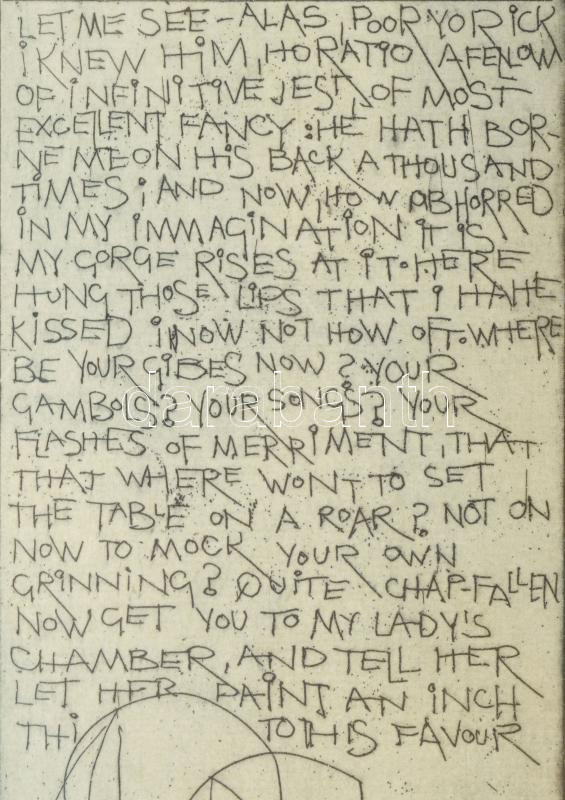 LET ME SEE - ALAS, POOR YORICK
I KNEW HIM, HORATIO A FELLOW
OF INFINITIVE JEST, OF MOST
EXCELLENT FANCY: HE HATH BOR-
NE ME ON HIS BACK A THOUSAND
TIMES; AND NOW, HOW ABHORRED
IN MY IMMAGINATION IT IS
MY GORGE RISES AT IT. HERE
HUNG THOSE LIPS THAT I HAHE
KISSED I NOW NOT HOW OFT. WHERE
BE YOUR GIBES NOW? YOUR
GAMBOLS? YOUR SONGS? YOUR
FLASHES OF MERRIMENT, THAT
THAT WHERE WONT TO SET
THE TABLE ON A ROAR? NOT ON
NOW TO MOCK YOUR OWN
GRINNING? QUITE CHAP-FALLEN
NOW GET YOU TO MY LADY'S
CHAMBER, AND TELL HER
LET HER PAINT AN INCH
THI TO THIS FAVOUR
darabanth